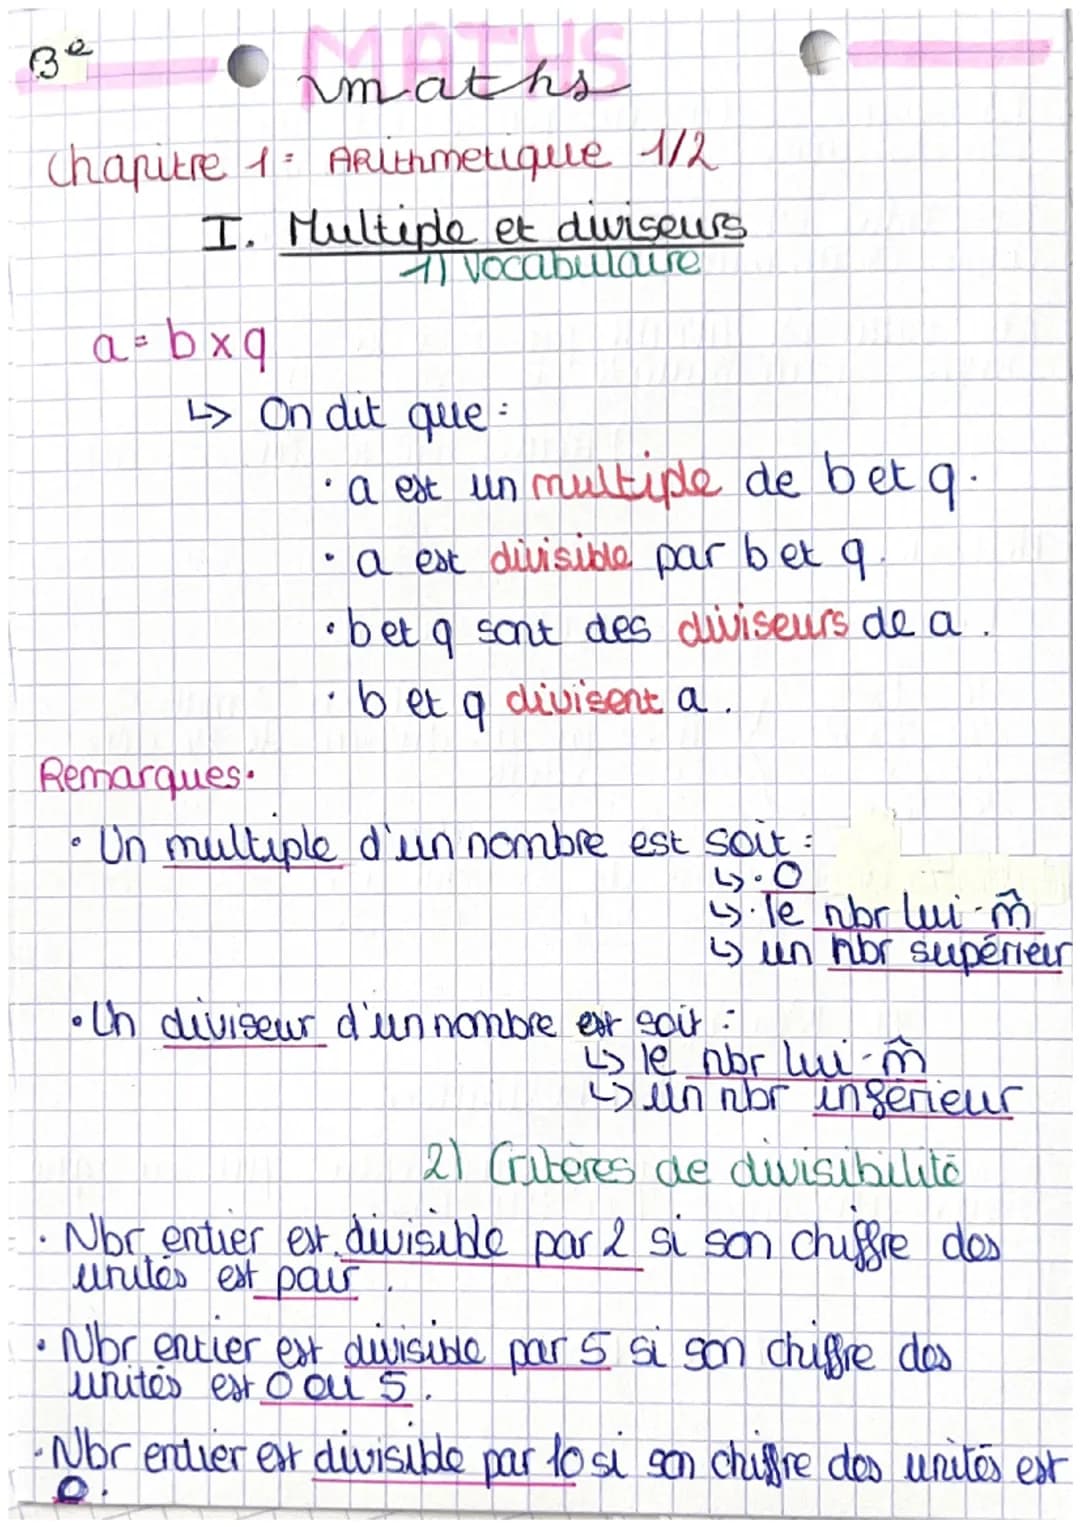 3e
MATHS
maths
Chapitre 1 : Arithmetique 1/2
I. Multiple et diviseurs
1) Vocabulaire
a = b x q
↳ On dit que :
• a est un multiple de b et q.
• a est divisible par b et q.
• b et q sont des diviseurs de a.
• b et q divisent a.
Remarques.
• Un multiple d'un nombre est soit :
↳ • 0
↳ • le nbr lui-m̂
↳ un nbr supérieur
• Un diviseur d'un nombre est soit :
↳ le nbr lui-m̂
↳ un nbr inférieur
2) Critères de divisibilité
• Nbr entier est divisible par 2 si son chiffre des
unités est pair.
• Nbr entier est divisible par 5 si son chiffre des
unités est 0 ou 5.
• Nbr entier est divisible par 10 si son chiffre des unités est
0.